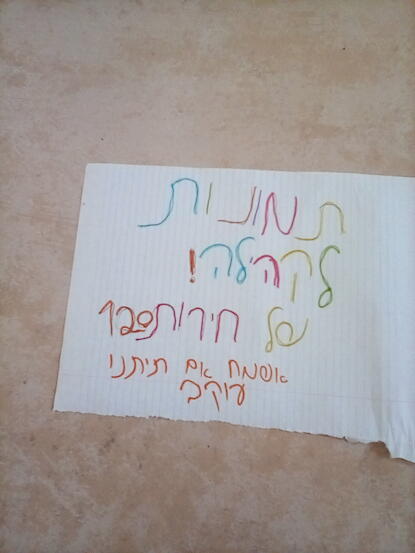 תמונות
לקהילה!
של חירות120
אשמח אם תיתנו
עוקב